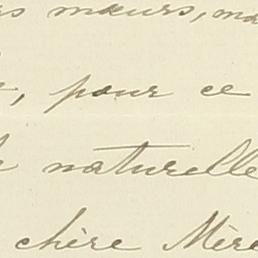 mœurs, ma
, pour ce
naturelle
chère Mère